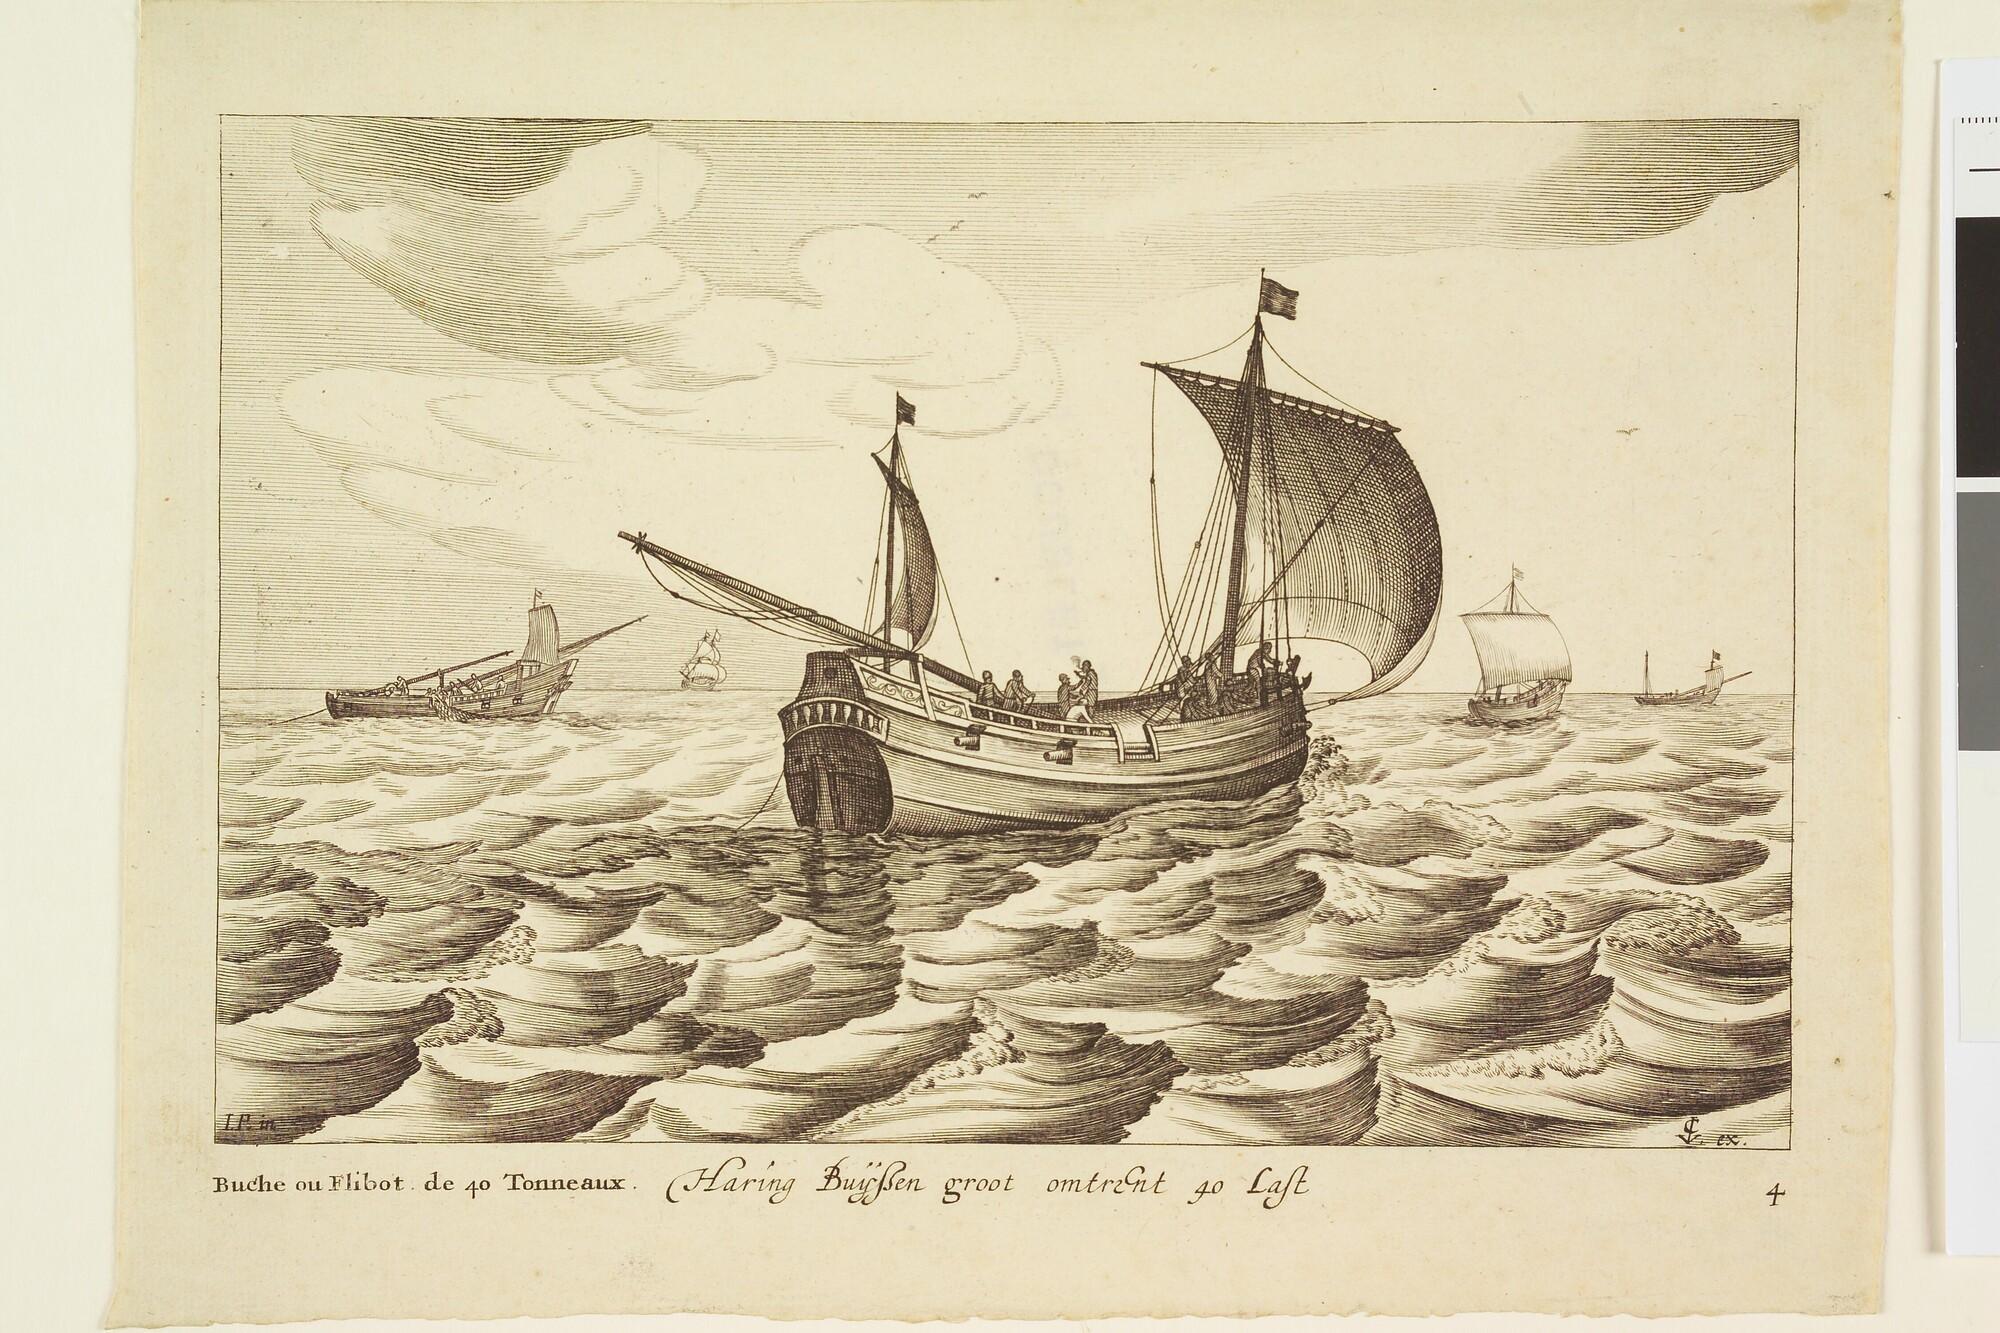 I.P. in.
CV. ex.
Buche ou Flibot. de 40 Tonneaux. Haring Buÿssen groot omtrent 40 Last
4